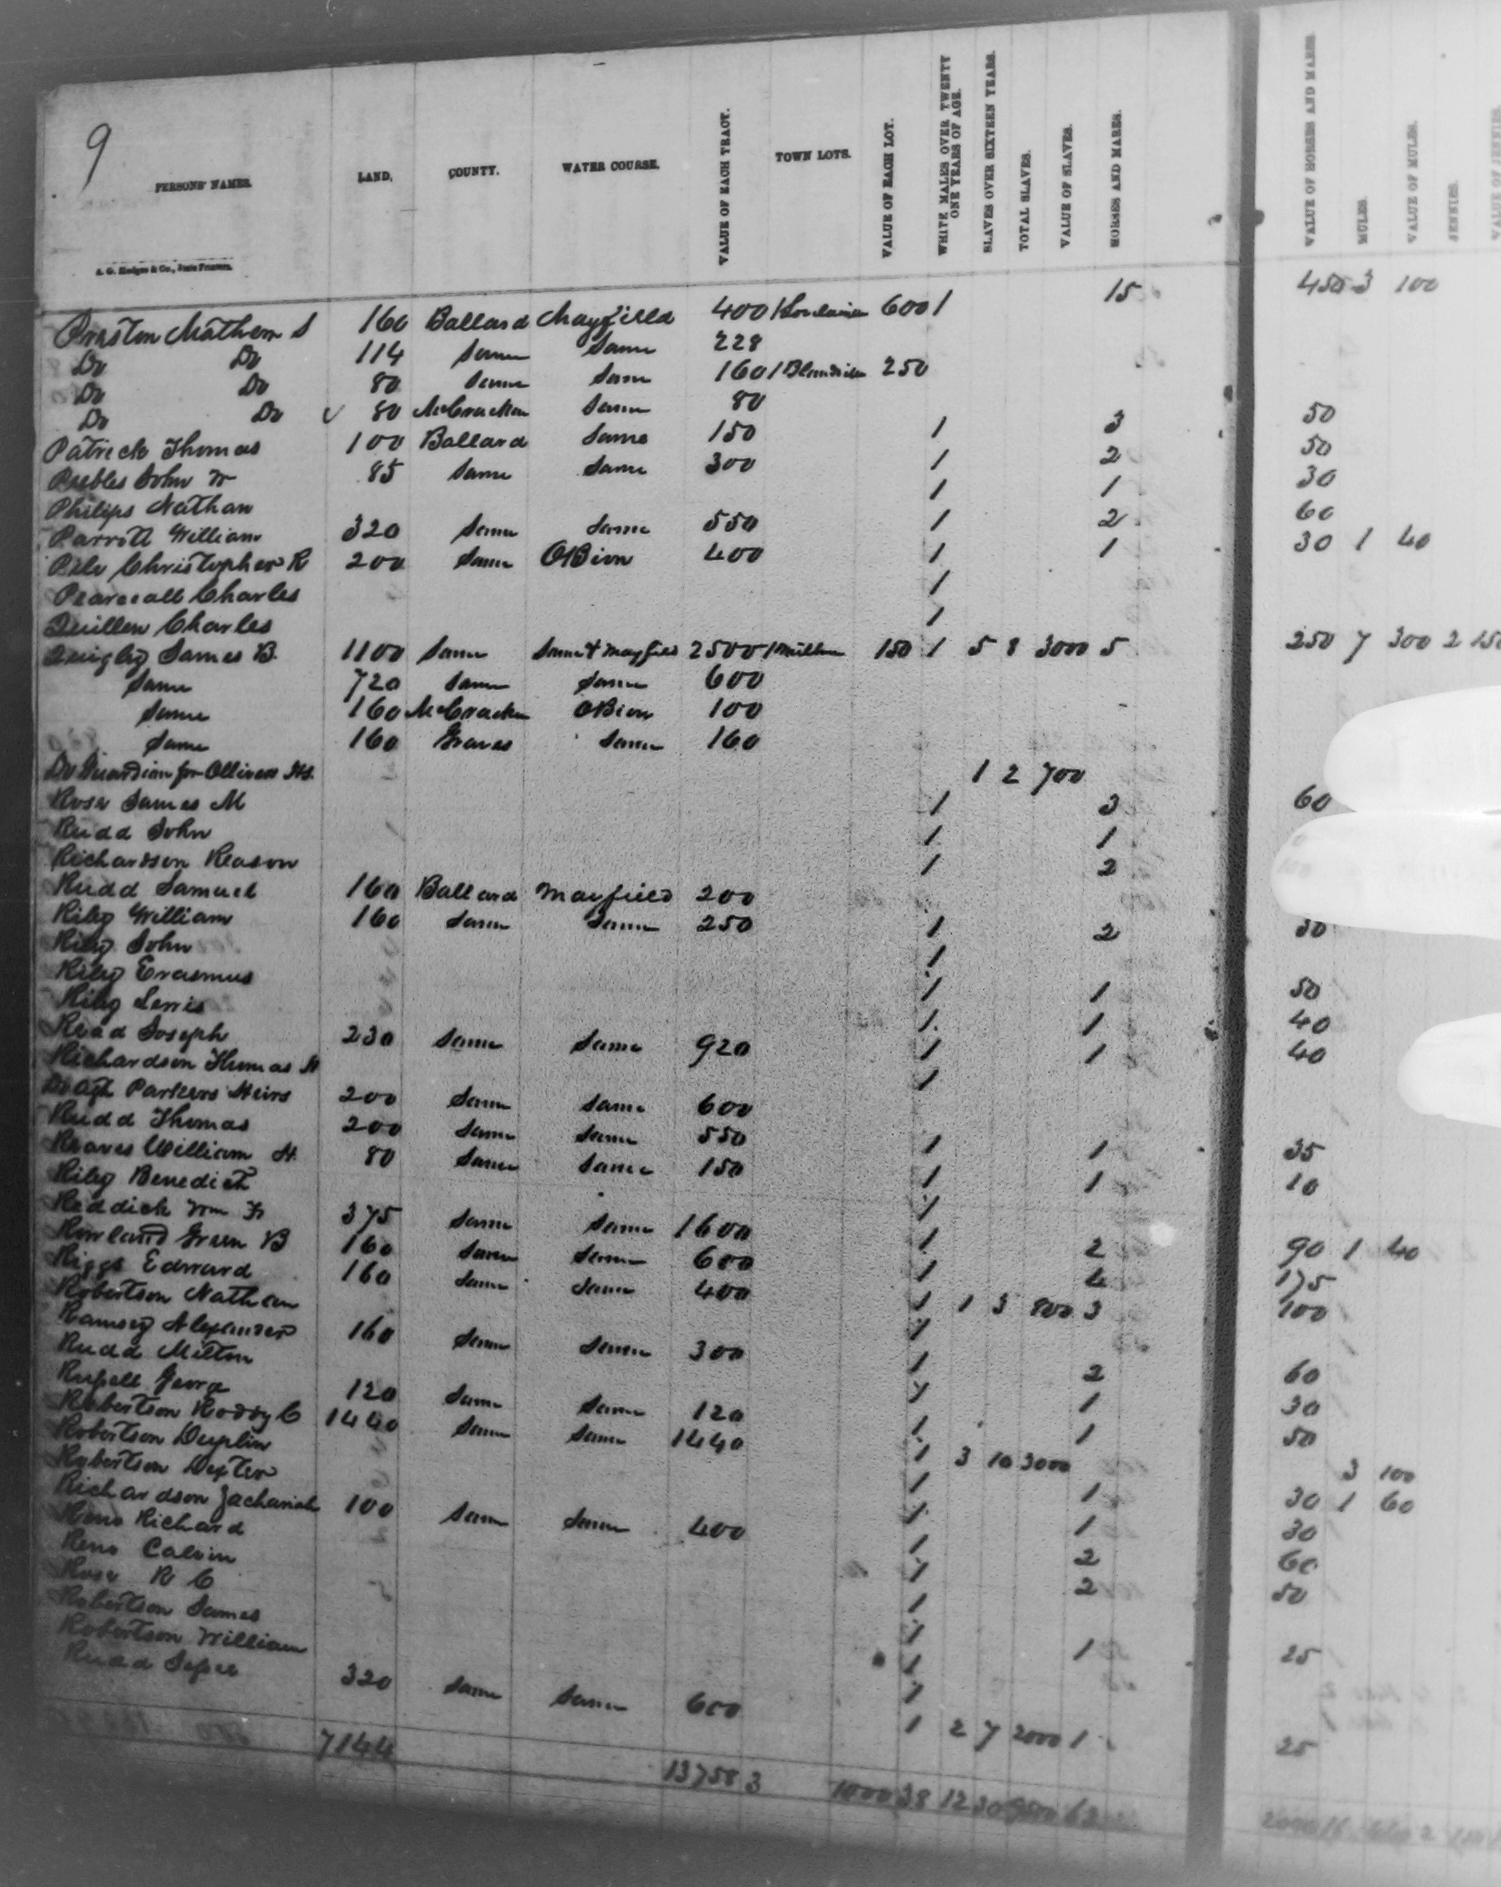 9
PERSONS' NAMES. LAND. COUNTY. WATER COURSE. VALUE OF EACH TRACT. TOWN LOTS. VALUE OF EACH LOT. WHITE MALES OVER TWENTY ONE YEARS OF AGE. SLAVES OVER SIXTEEN YEARS. TOTAL SLAVES. VALUE OF SLAVES. HORSES AND MARES. VALUE OF HORSES AND MARES MULES. VALUE OF MULES. JENNIES. VALUE OF JENNIES
A. G. Hodges & Co., State Printers.
Preston Mathew S 160 Ballard Mayfield 400 1 600 1 15 450 3 100
Do Do 114 Same Same 228
Do Do 80 Same Same 160 1 Blandville 250
Do Do 80 McCracken Same 80
Patrick Thomas 100 Ballard Same 150 1 3 50
Peebles John W 85 Same Same 300 1 2 50
Philips Nathan 1 1 30
Parrott William 320 Same Same 550 1 2 60
Christopher R 200 Same OBion 400 1 1 30 1 40
Pearceall Charles 1
Quillen Charles 1
Quigley James B. 1100 Same Same & Mayfield 2500 1 Milburn 150 1 5 8 3000 5 250 7 300 2 150
Same 720 Same Same 600
Same 160 McCracken OBion 100
Same 160 Graves Same 160
Do Guardian for Ollivers Hs. 1 2 700
Rose James M 1 3 60
Rudd John 1 1
Richardson Reason 1 2
Rudd Samuel 160 Ballard Mayfield 200
Riley William 160 Same Same 250 1 2 30
Riley John 1
Riley Erasmus 1 1 50
Riley 1 1 40
Read Joseph 230 Same Same 920 1 1 40
Richardson Thomas H 1
Do Agt Parkers Heirs 200 Same Same 600
Rudd Thomas 200 Same Same 550 1 1 35
Reaves William H. 80 Same Same 150 1 1 10
Riley Benedict 1
Reddick Wm 375 Same Same 1600 1 2 90 1 40
Rowland Green B 160 Same Same 600 1 4 175
Riggs Edward 160 Same Same 400 1 1 3 800 3 100
Robertson Nathan 1
Ramsey Alexander 160 Same Same 300 1 2 60
Rudd Milton 1 1 30
Russell George 120 Same Same 120 1 1 50
Robertson Roddy C 1440 Same Same 1440 1 3 10 3000 3 100
Robertson Duplin 1 1 30 1 60
Robertson Dexter 1 1 30
Richardson Zachariah 100 Same Same 400 1 2 60
Reno Richard 1 2 50
Reno Calvin 1
Rose R C 1 1 25
Robertson James 1
Robertson William 1
Rudd Jesse 320 Same Same 600 1 2 7 2000 1 25
7144 13758 3 1000 38 12 30 9500 62